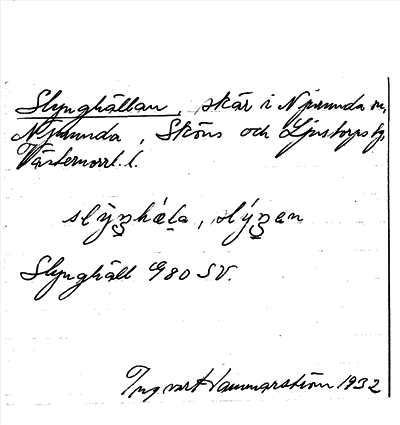 Slynghällan, skär i Njurunda sn,
Njurunda, Sköns och Ljustorps tg,
Västernorrl. l.
slýŋhæḷa, slýŋen
Slynghäll G80 SV.
Ingvart Hammarström 1932